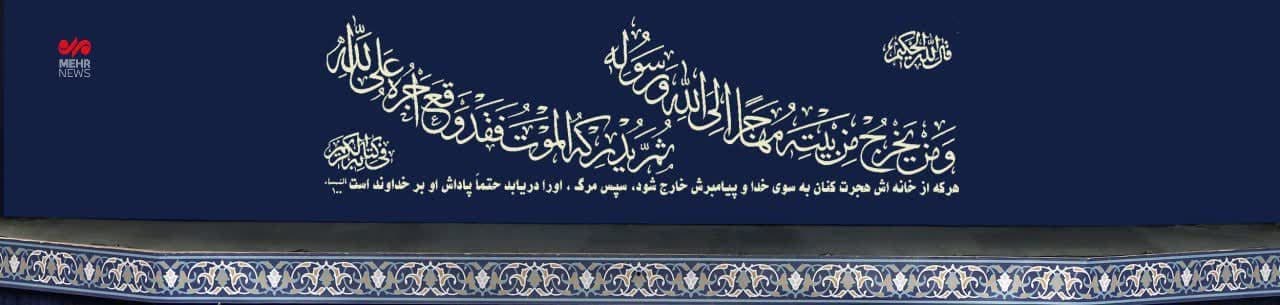 قال الله الحکیم
وَمَنْ يَخْرُجْ مِنْ بَيْتِهِ مُهَاجِرًا إِلَى اللَّهِ وَرَسُولِهِ
ثُمَّ يُدْرِكْهُ الْمَوْتُ فَقَدْ وَقَعَ أَجْرُهُ عَلَى اللَّهِ
فی کتابه الکریم
هرکه از خانه اش هجرت کنان به سوی خدا و پیامبرش خارج شود، سپس مرگ ، اورا دریابد حتماً پاداش او بر خداوند است النساء ۱۰۰
MEHR
NEWS